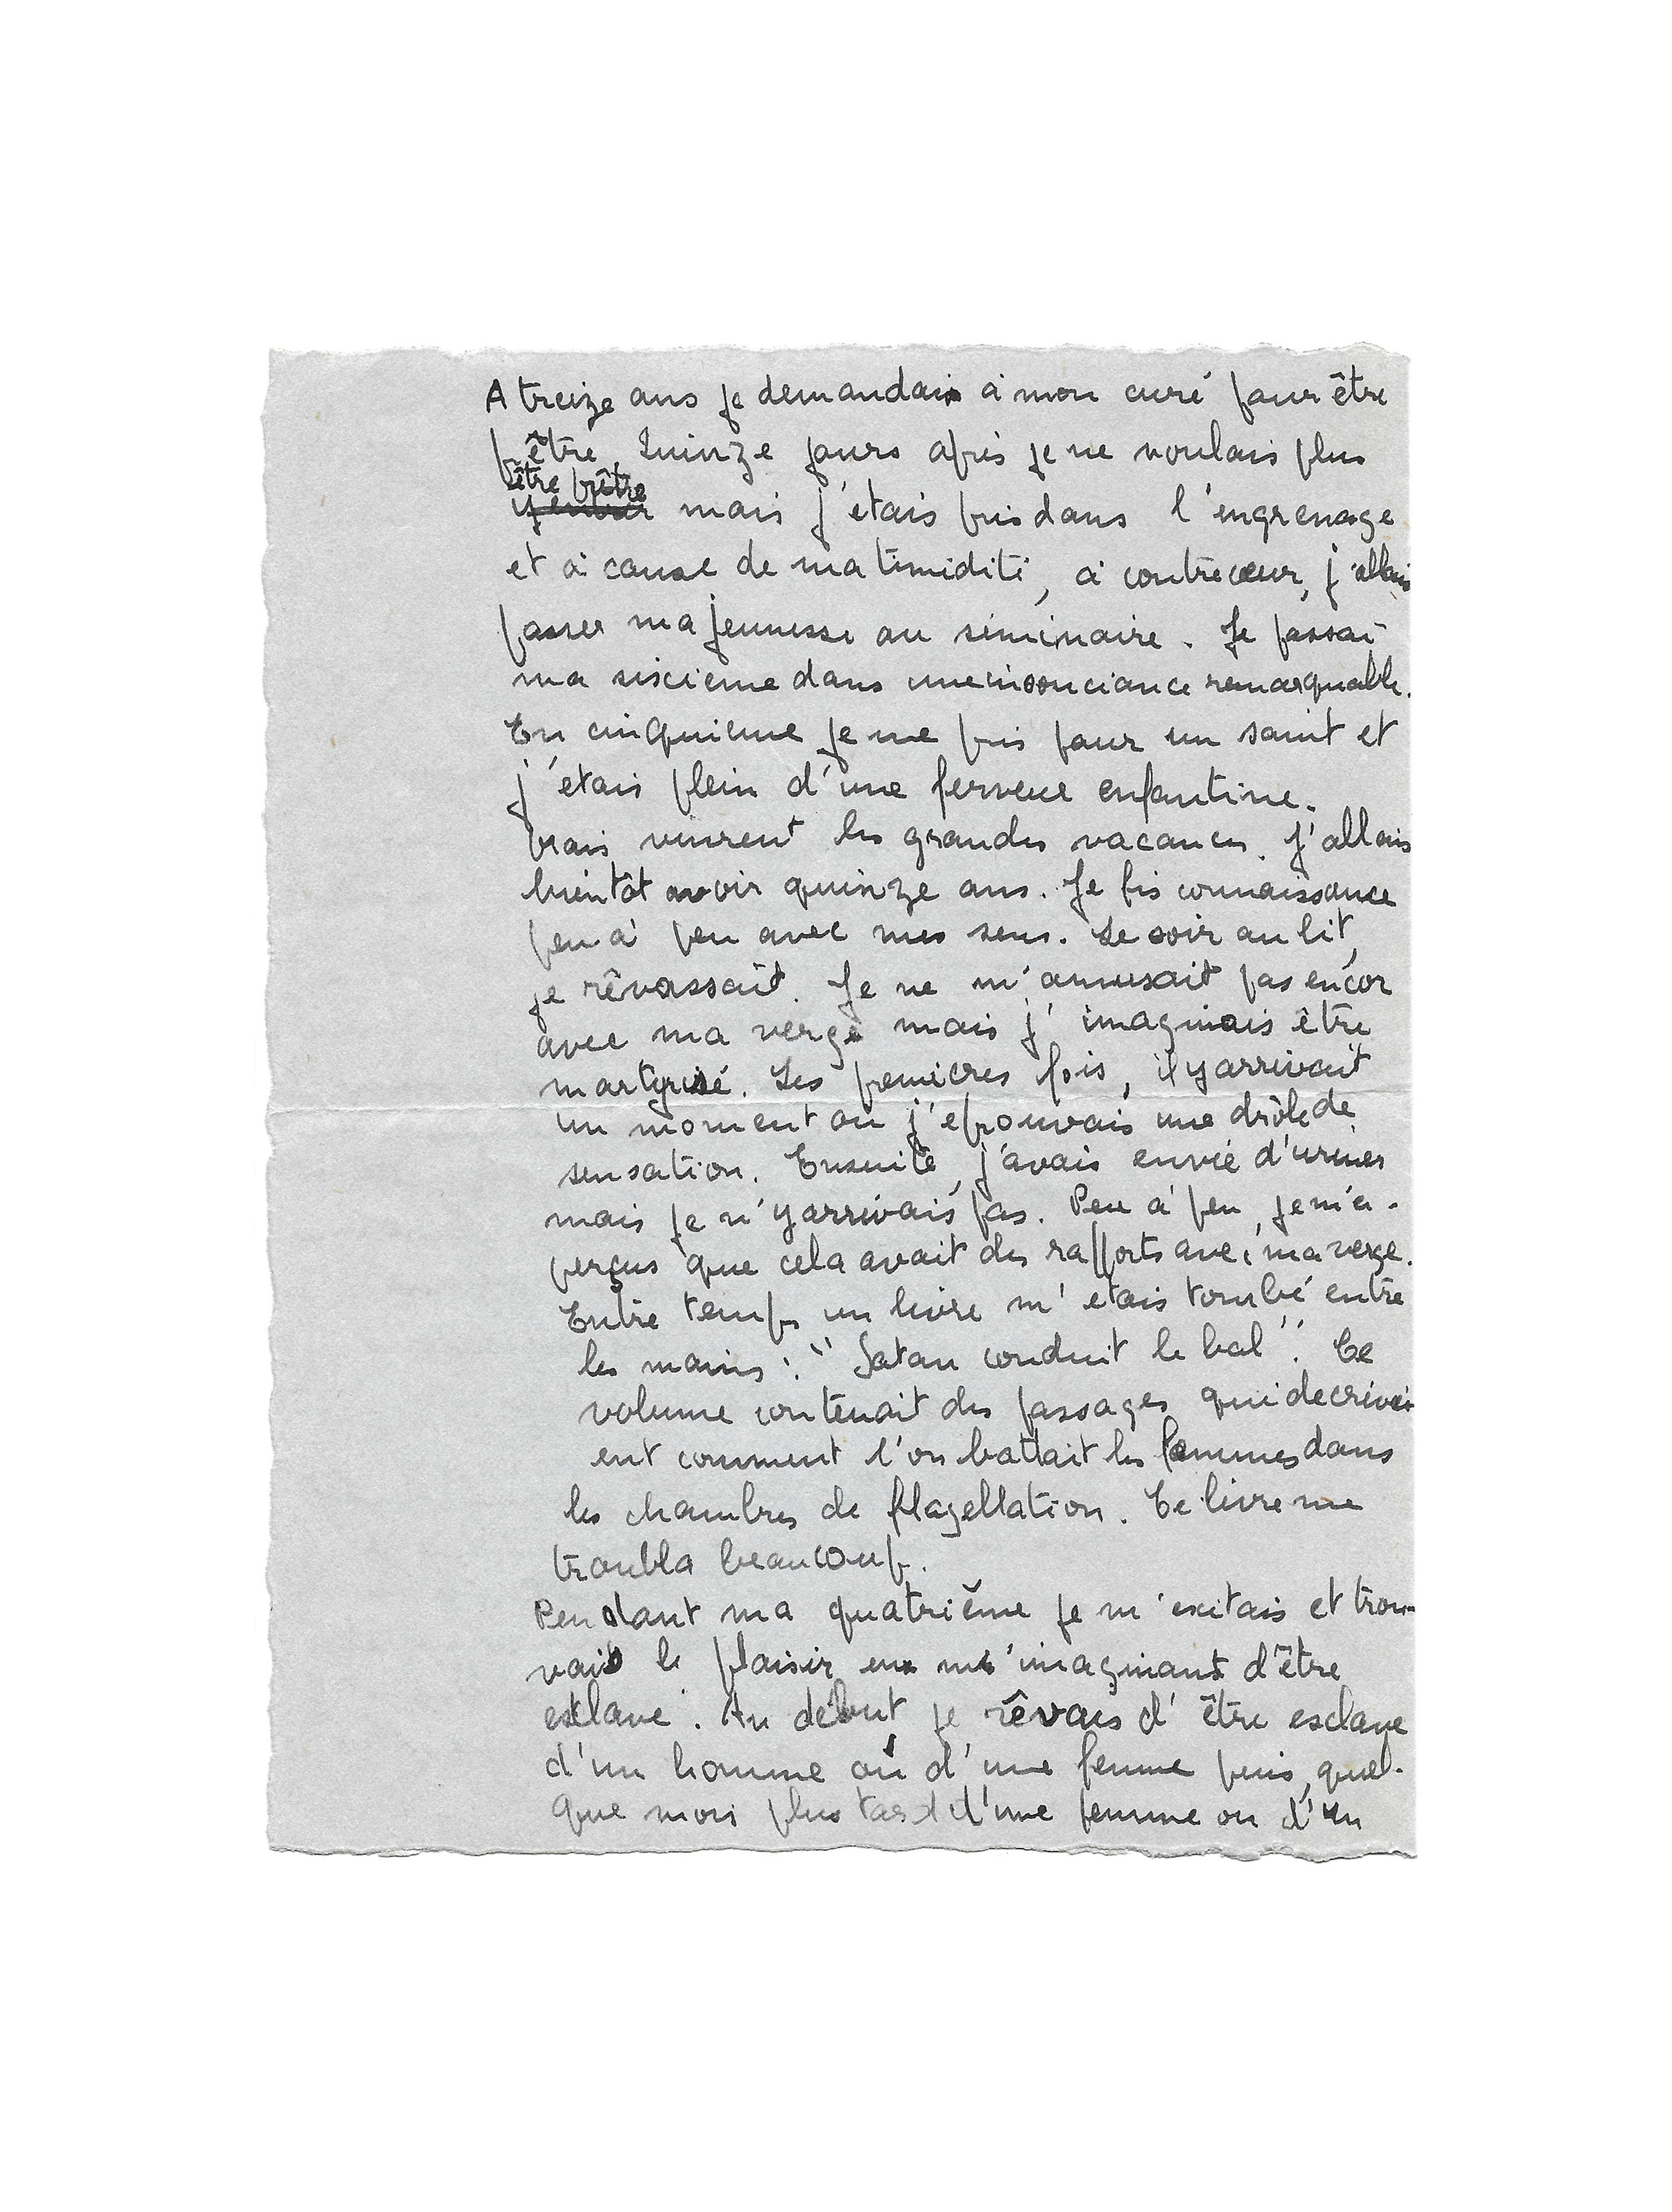 A treize ans je demandais à mon curé pour être
prêtre. Quinze jours après je ne voulais plus
être prêtre
mais j'étais pris dans l'engrenage
et à cause de ma timidité, à contrecœur, j'allais
passer ma jeunesse au séminaire. Je passai
ma sixcieme dans une insouciance remarquable.
En cinquieme je me pris pour un saint et
j'étais plein d'une ferveur enfantine.
Mais vinrent les grandes vacances. J'allais
bientôt avoir quinze ans. Je fis connaissance
peu à peu avec mes sens. Le soir au lit,
je rêvassait. Je ne m'amusait pas encor
avec ma verge mais j'imaginais être
martyrisé. Les premières fois, il y arrivait
un moment ou j'eprouvais une drôle de
sensation. Ensuite, j'avais envie d'uriner
mais je n'y arrivais pas. Peu à peu, je m'a-
perçus que cela avait des rapports avec ma verge.
Entre temps un livre m'etais tombé entre
les mains : "Satan conduit le bal". Ce
volume contenait des passages qui decrivai
ent comment l'on battait les femmes dans
les chambres de flagellation. Ce livre me
troubla beaucoup.
Pendant ma quatrième je m'exitais et trou-
vais le plaisir en m'imaginant d'être
esclave. Au début je rêvais d'être esclave
d'un homme où d'une femme puis, quel-
que mois plus tard d'une femme ou d'un